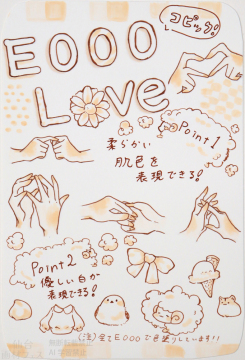 コピック!
E000
Love
Point 1
柔らかい
肌色を
表現できる!
Point 2
優しい白が
表現できる!
(注)全てE000で色塗りしています!!